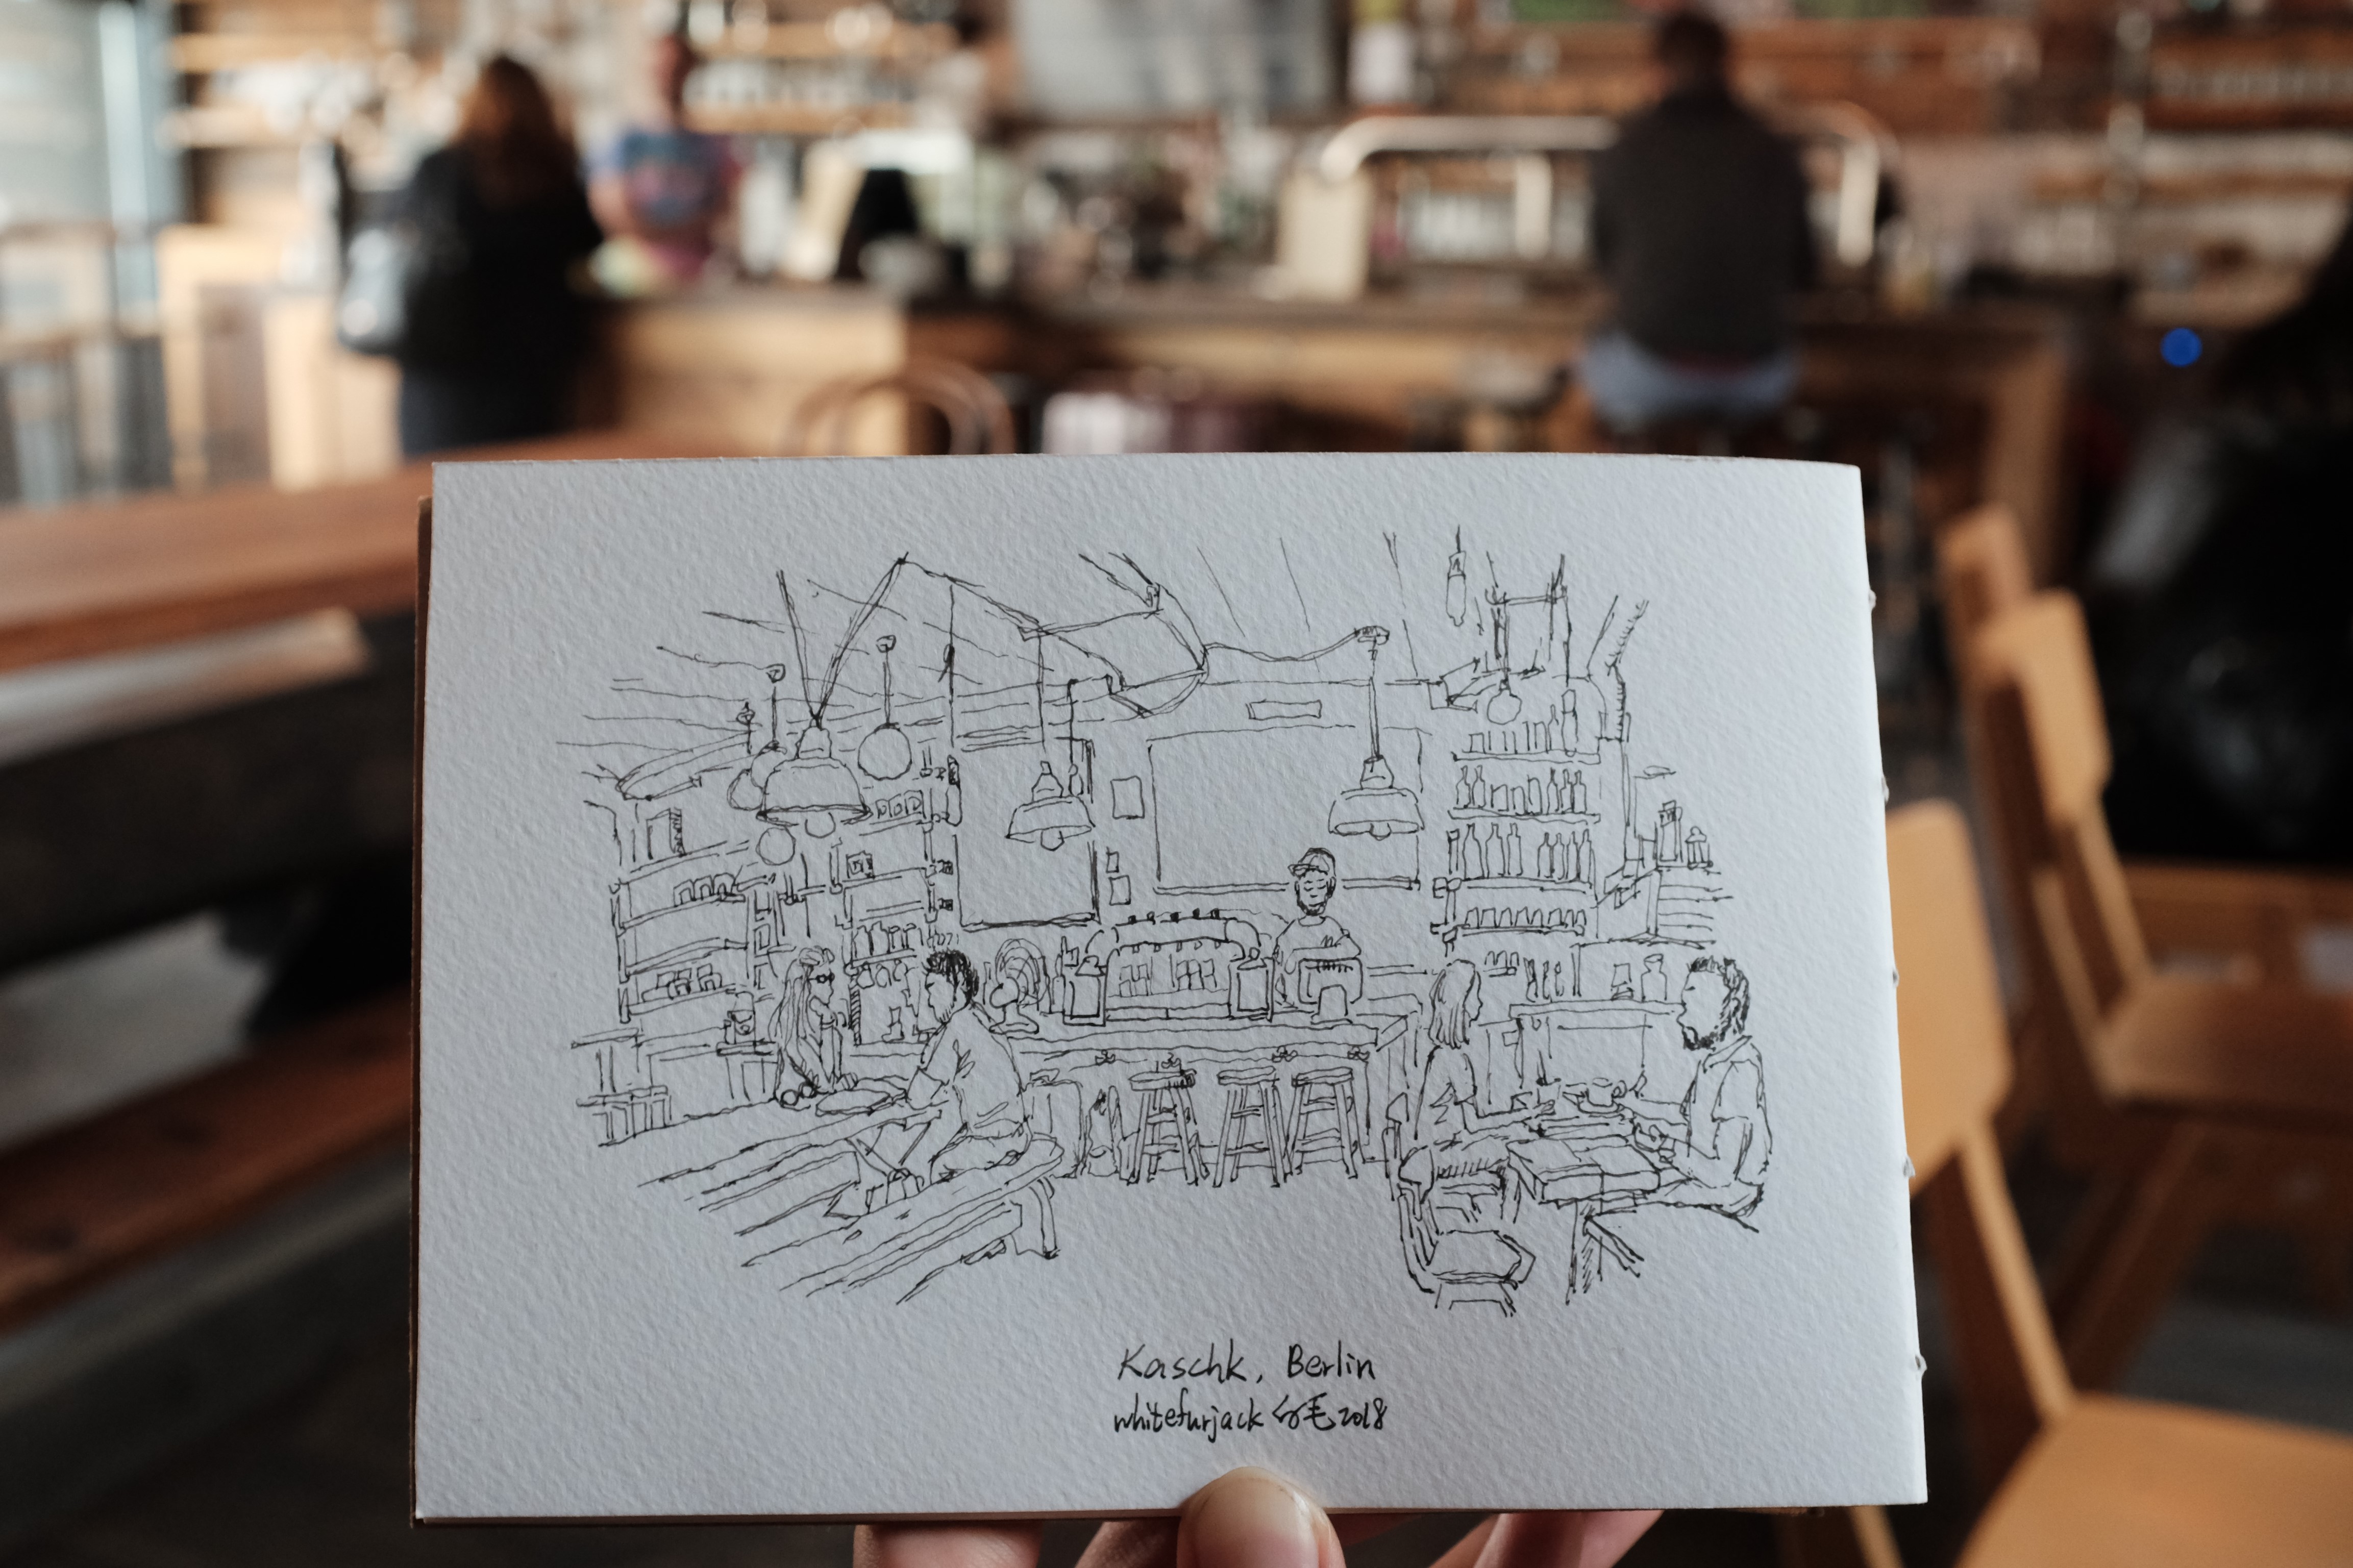 Kaschk, Berlin
whitefurjack 白毛 2018